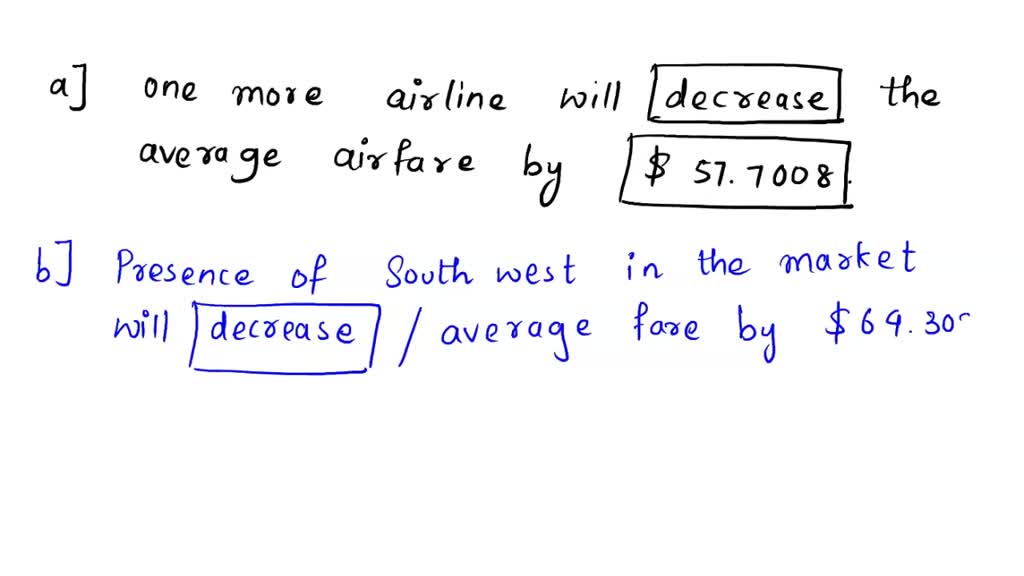 a] one more airline will decrease the
average airfare by $ 57.7008.
b] Presence of South west in the market
will decrease / average fare by $